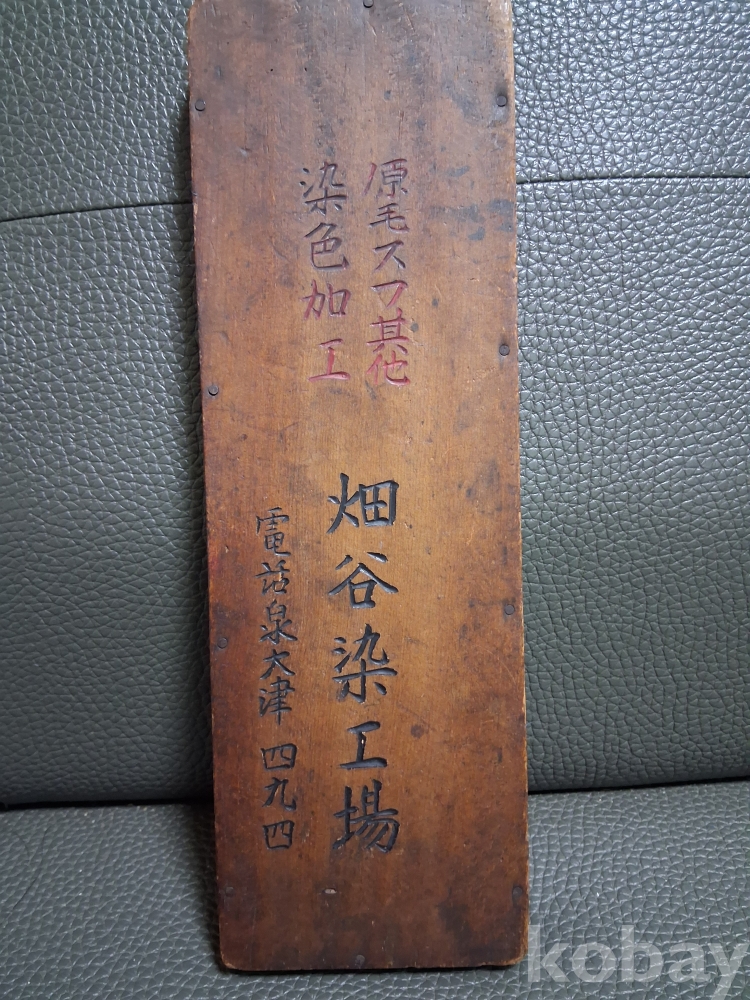 原毛スフ其他
染色加工
畑谷染工場
電話泉大津四九四
kobay